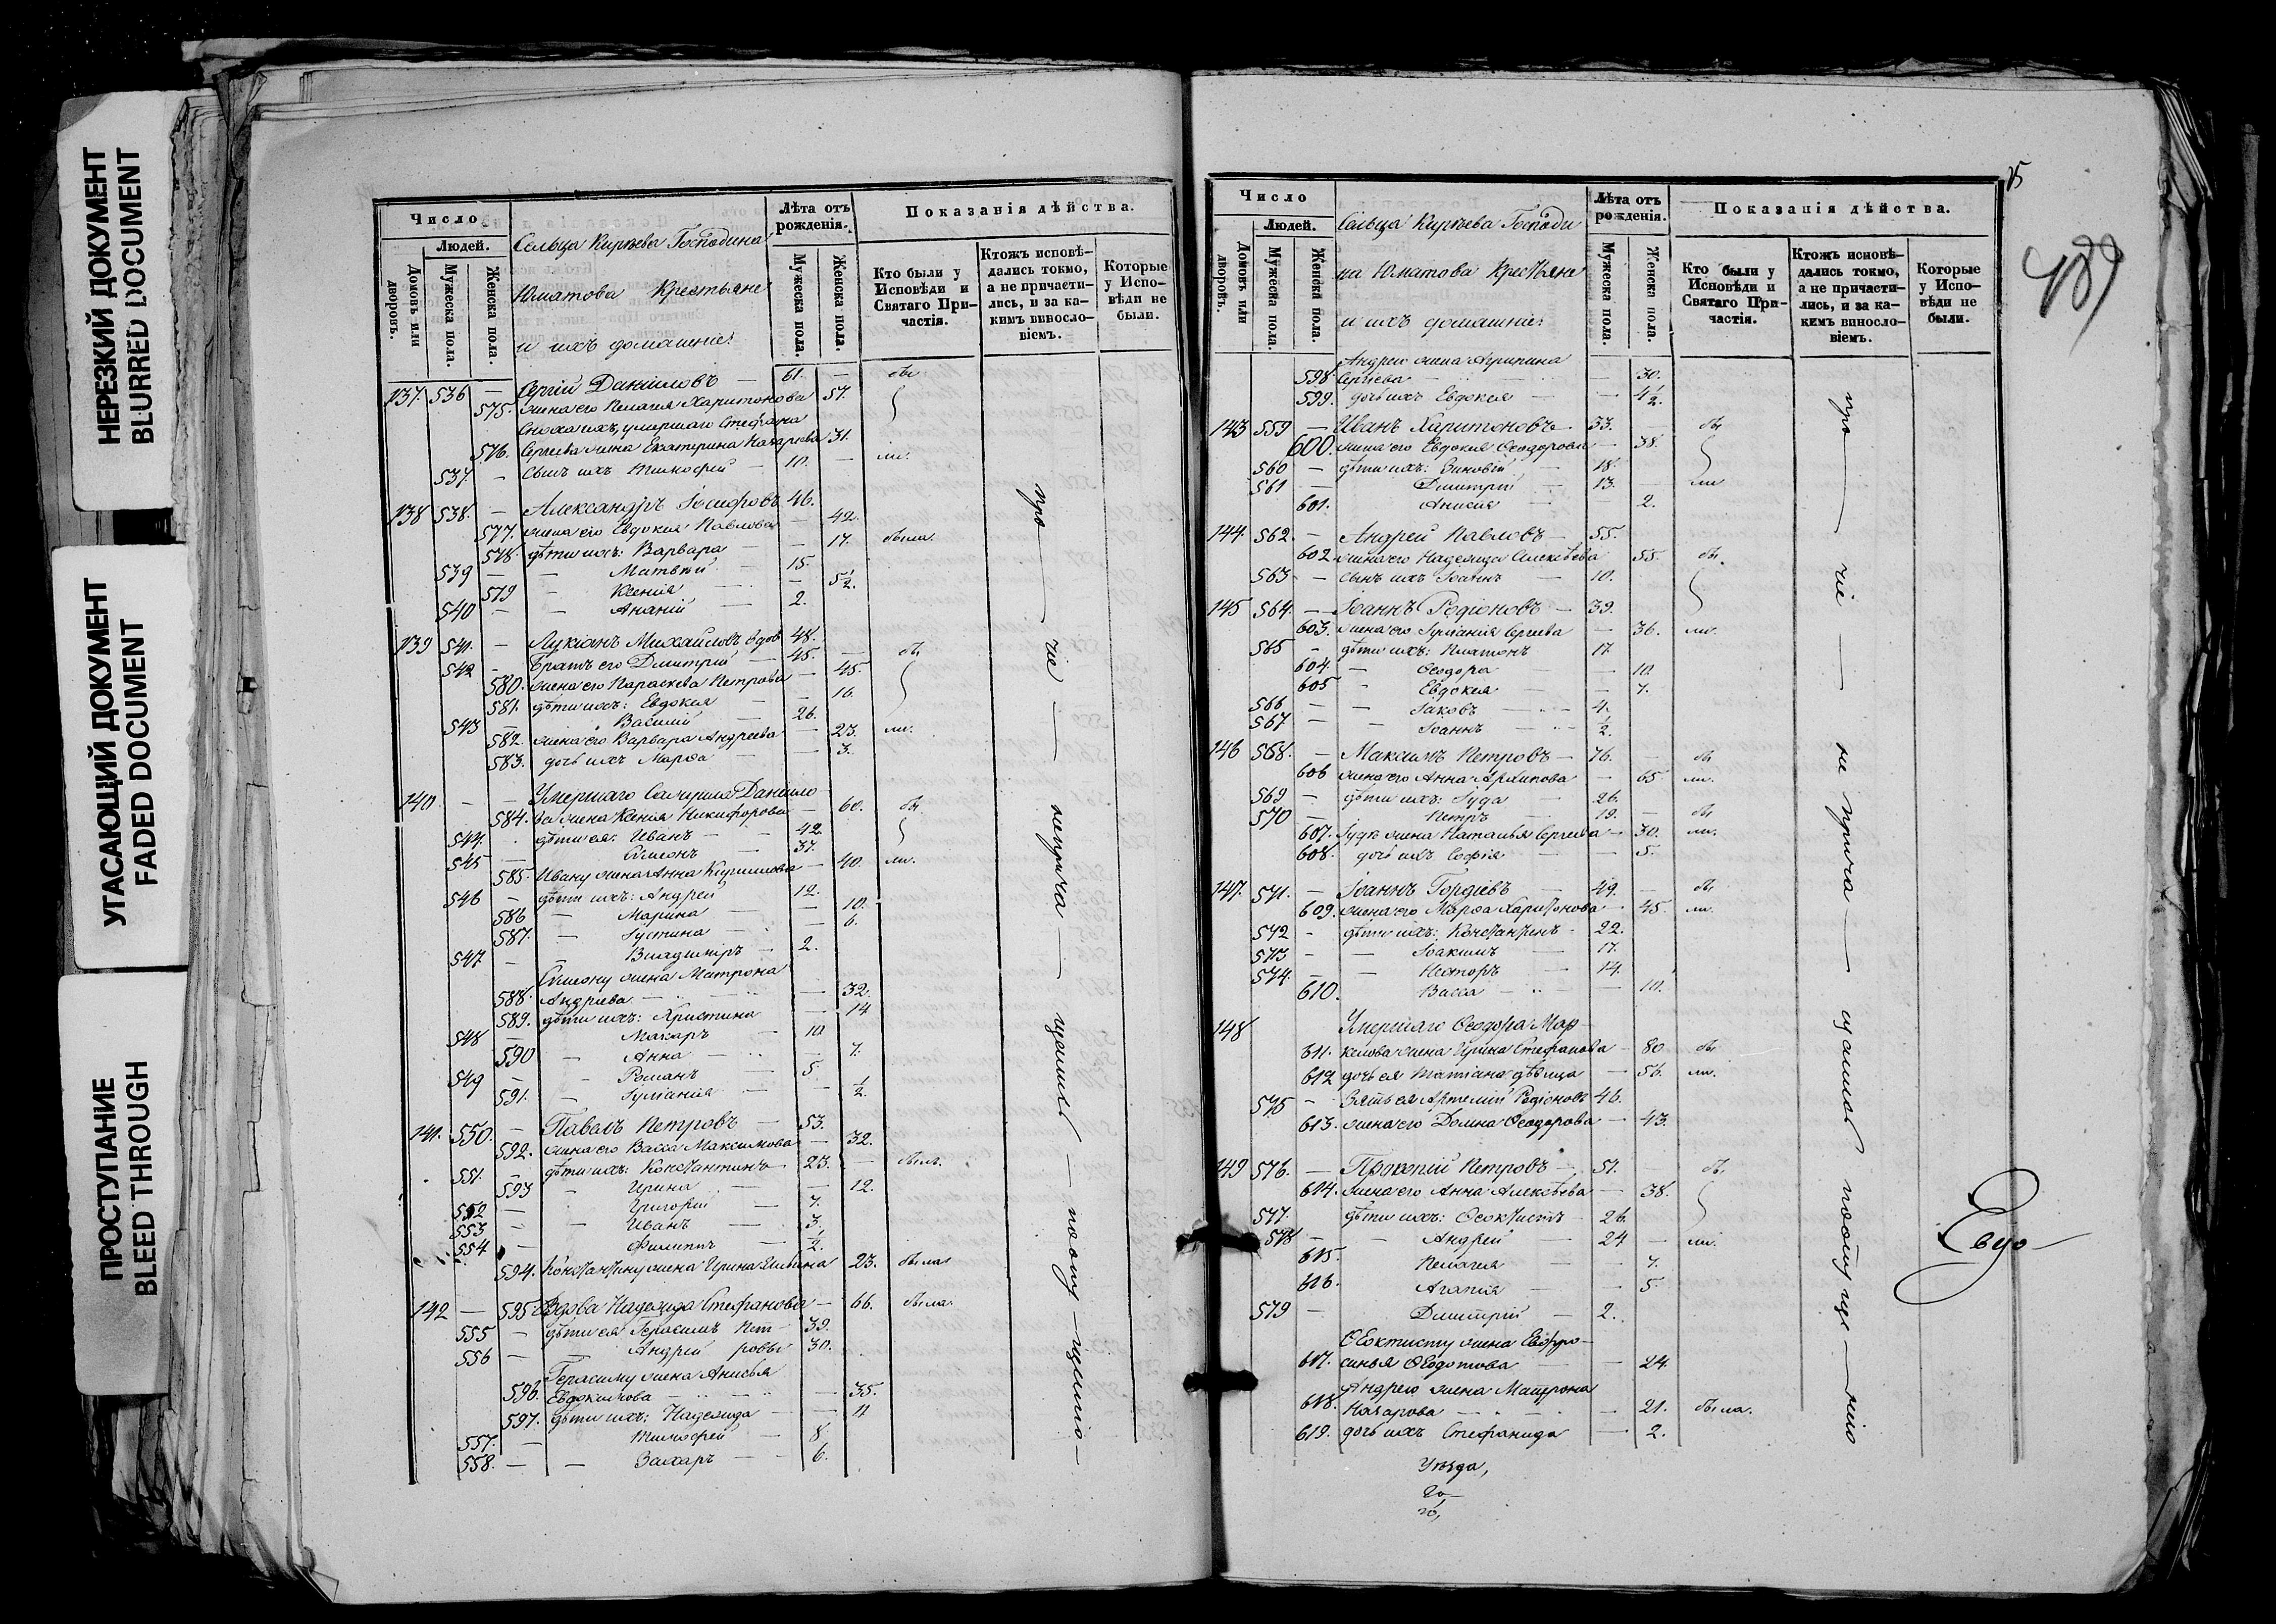 НЕРЕЗКИЙ ДОКУМЕНТ
BLURRED DOCUMENT
УГАСАЮЩИЙ ДОКУМЕНТ
FADED DOCUMENT
ПРОСТУПАНИЕ
BLEED THROUGH
Число
Людей.
Домовъ или дворовъ.
Мужеска пола.
Женска пола.
Сельца Кирѣева Господина
Юматова Крестьяне
и ихъ домашніе
Лѣта отъ рожденія.
Мужеска пола.
Женска пола.
Показанія дѣйства.
Кто были у Исповѣди и Святаго Причастія.
Ктожъ исповѣдались токмо, а не причастились, и за какимъ винословіемъ.
Которые у Исповѣди не были.
137. 536 — Сергій Даниловъ — 61. — бы
575. жена его Пелагея Харитонова 57.
Сноха ихъ, умершаго Стефана
576. Сергѣева жена Екатерина Назарьева 31.
537. — сынъ ихъ Тимофей — 10. — ли.
138 538. — Александръ Іосифовъ 46.
577. жена его Евдокия Павлова — 42.
578. дѣти ихъ: Варвара — — 17. была.
539 — — Матвѣй — 15.
579 — Ксенія — 5 1/2
540 — — Ананій — 2.
139 541. — Лукіанъ Михайловъ вдов 48.
542 — Братъ его Дмитрій — 45. — бы
580. жена его Параскева Петрова — 45.
581. дѣти ихъ: Евдокия — 16.
543 — Василій 26.
582. жена его Варвара Андреева — 23. ли.
583. дочь ихъ Марѳа — — 3.
140 — — Умершаго Данило
584. ва жена Ксенія Никифорова — 60. бы
544. дѣти ея: Иванъ — 42.
545 — Симеонъ — 37.
585. Ивану жена Анна Кириллова — 40. ли.
546 — дѣти ихъ: Андрей 12.
586 — Марина — — 10.
587. — Іустина — — 6.
547 — — Владиміръ — 2.
Симеону жена Матрона
588. Андреева — — 32.
589. дѣти ихъ: Христина — 14
548 — Макаръ — 10
590 — Анна — — 7.
549 — — Романъ — 5
591. — Іуліанія — 1/2.
141. 550. — Павелъ Петровъ — 53.
592. жена его Васса Максимова — 32.
551. — дѣти ихъ: Константинъ 23. — былъ.
593 — Ирина — — 12.
552 — Григорій — 7.
553 — — Иванъ — 3.
554 — Филиппъ — 1/2.
594. Константину жена Ирина 23. была
142 — 595 Вдова Надежда Стефанова — 66. была.
555 — дѣти ея Герасимъ Пет- 39.
556 — — Андрей ровы 30.
Герасиму жена Анисья
596. Евдокимова — — 35.
597. дѣти ихъ: Надежда — — 11
557. — Тимофей — 8.
558. — — Захаръ — 6.
про — чіе — непріча — щались — посту — щенію —
Число
Людей.
Домовъ или дворовъ.
Мужеска пола.
Женска пола.
Сельца Кирѣева Господи
на Юматова Крестьяне
и ихъ домашніе
Лѣта отъ рожденія.
Мужеска пола.
Женска пола.
Показанія дѣйства.
Кто были у Исповѣди и Святаго Причастія.
Ктожъ исповѣдались токмо, а не причастились, и за какимъ винословіемъ.
Которые у Исповѣди не были.
Андрею жена Агрипина
598. Сергѣева — — 30.
599. дочь ихъ Евдокия — — 4 1/2.
143 559 — Иванъ Харитоновъ — 33. бы
600. жена его Евдокия Ѳеодорова — 38.
560 — дѣти ихъ: Зиновій — 18.
561 — Дмитрій — 13. — ли
601. Анисия — 2.
144. 562. — Андрей Павловъ — 55.
602 жена его Надежда Алексѣева 55. бы
563 — сынъ ихъ Іоаннъ — 10.
145 564. — Іоаннъ Родіоновъ — 39.
603. жена его Іуліанія Сергѣева — 36. ли.
565 — дѣти ихъ: Платонъ 17.
604. — Ѳеодора — 10.
605 — Евдокея — — 7.
566 — — Іаковъ — 4.
567 — — Іоаннъ — 1/2.
146 568. — Максимъ Петровъ — 76. — бы
606 жена его Анна Архипова — 65 ли.
569 — дѣти ихъ: Іуда — 26.
570 — Петръ — 19. — бы
607. Іудѣ жена Наталья Сергѣева — 30. ли.
608. дочь ихъ Софія — — 5.
147. 571. — Іоаннъ Гордіевъ — 49. — бы
609. жена его Марѳа Харитонова — 45. ли.
572 — дѣти ихъ: Константинъ — 22.
573 — — Іоакимъ — 17.
574. — — Несторъ — 14.
610. Васса — — 10.
148 Умершаго Ѳеодора Мар-
611. келова жена Ирина Стефанова — 80 бы
612 дочь ея Татіана дѣвица — 56. ли.
575 — Зять ея Артемій Родіоновъ 46.
613. жена его Домна Ѳеодорова — 43.
149 576. — Прокопій Петровъ — 57. — бы
614. жена его Анна Алексѣева — 38.
577. дѣти ихъ: Ѳеоктистъ — 26.
578 — — Андрей — 24 — ли.
615. Пелагея — — 7.
616. Агапія — — 5.
579 — Дмитрій — 2.
Ѳеоктисту жена Евфро-
617. синья Ѳедотова — — 24.
Андрею жена Матрона
618. Назарова — — 21. была.
619. дочь ихъ Стефанида — 2.
про — чіе — не прича — щались — попуще — нію
Уѣзда,